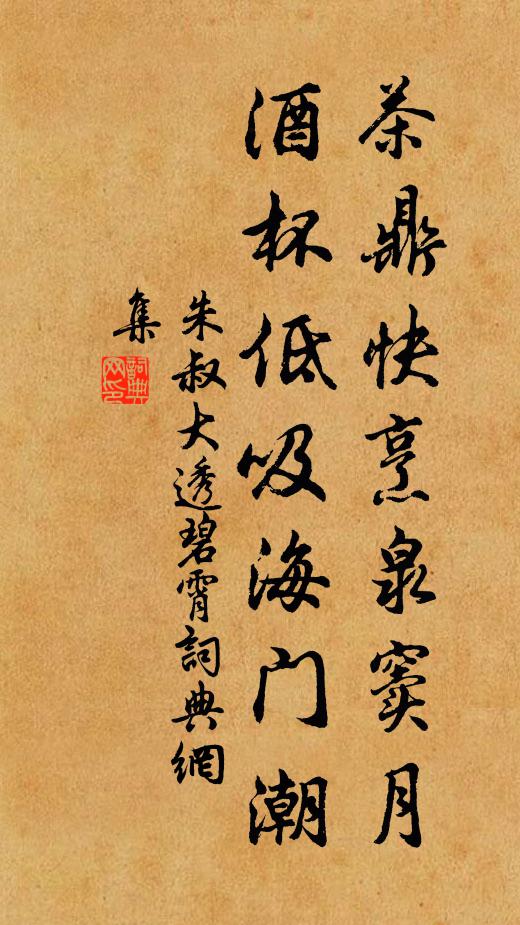 茶鼎快烹泉窦月
酒杯低吸海门潮
朱叔大透碧霄詞典網
集
詞典網印